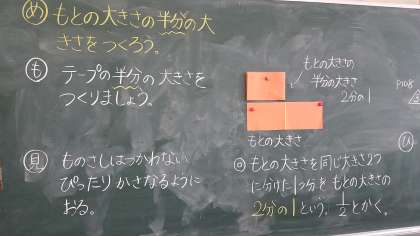 め もとの大きさの半分の大
きさをつくろう。
も テープの半分の大きさを
つくりましょう。
見 ものさしはつかわない
ぴったりかさなるように
おる。
もとの大きさの
半分の大きさ
2分の1
もとの大きさ
◎もとの大きさを同じ大きさ2つ
に分けた1つ分をもとの大きさの
2分の1といい、1/2とかく。